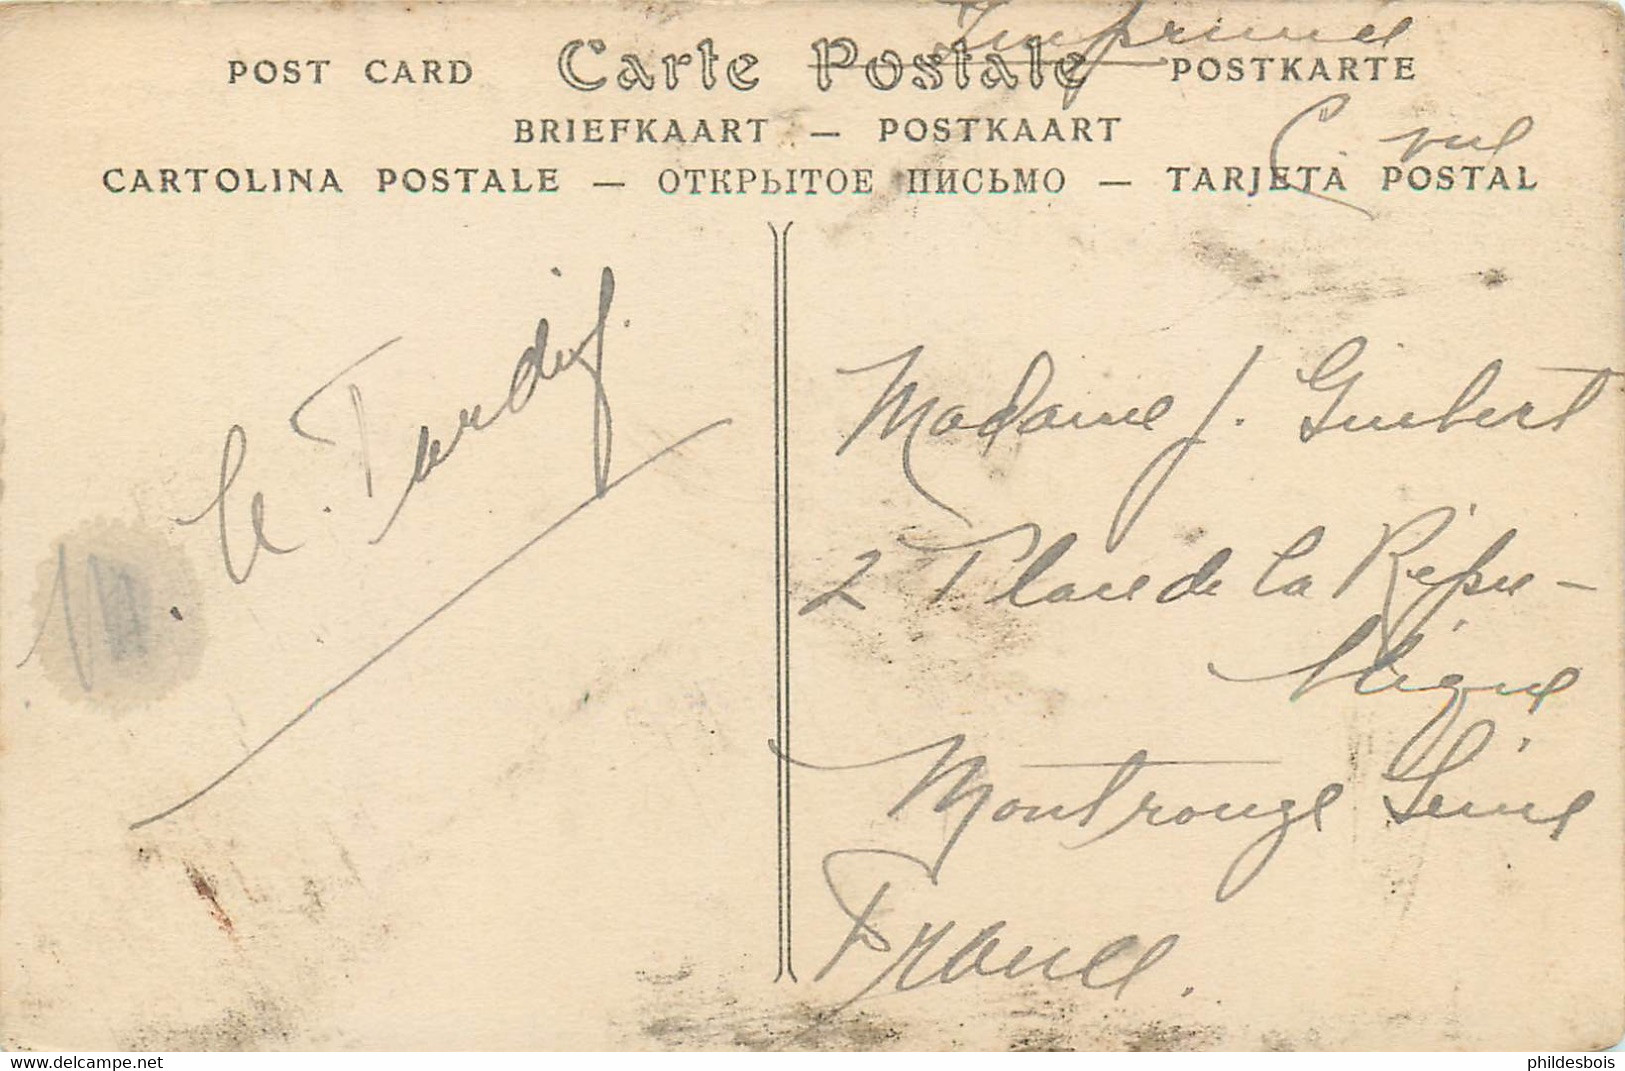 Imprimé
POST CARD Carte Postale POSTKARTE
BRIEFKAART — POSTKAART
CARTOLINA POSTALE — ОТКРЫТОЕ ПИСЬМО — TARJETA POSTAL
Tardif.
Madame J. Guibert
2 Place de la Répu-
blique
Montrouge Seine
France.
delcampe.net
phildesbois